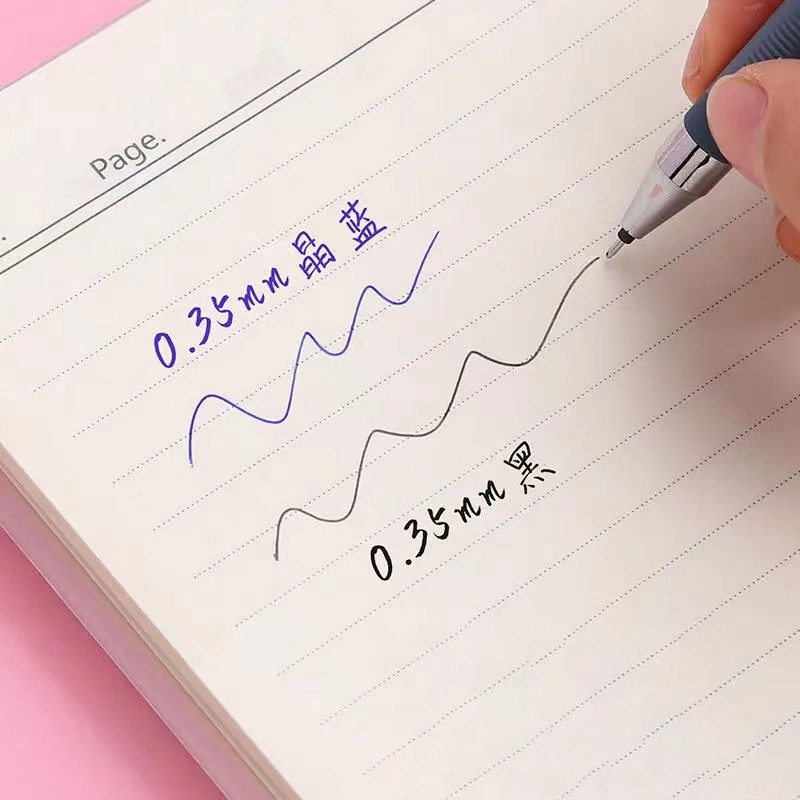 Page.
0.35mm晶蓝
0.35mm黑